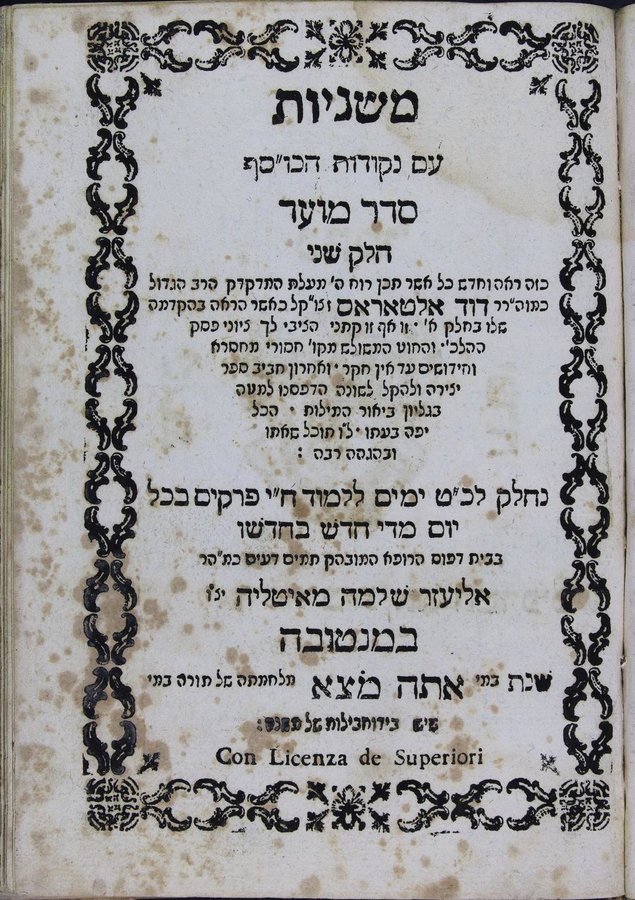 משניות
עם נקודות הכו״סף
סדר מועד
חלק שני
כזה ראה וחדש כל אשר תכן רוח ה׳ מעלת המדקדק הרב הגדול
כמוה״רר דוד אלטאראס זנו״קל כאשר הראה בהקדמה
שלו בחלק א׳ ׃ זו אף זו קתני הציבי לך ציוני פסק
ההלכ״ו והחוט המשולש מקו׳ חסורי מחסרא
וחידושים עד אין חקר ׃ ואחרון חביב ספר
יצירה ולהקל לשונה הדפסנו למטה
בגליון ביאור המילות ׃ הכל
יפה בעתו ׃ ל״ו תוכל שאתו
ובהגהה רבה :
נחלק לכ״ט ימים ללמוד ח״י פרקים בכל
יום מדי חדש בחדשו
בבית דפוס הרופא המובהק תמים דעים כמ״הר
אליעזר שלמה מאיטליה יצ״ו
במנטובה
שנת במי אתה מצא מלחמתה של תורה במי
שיש בידו חבילות של משנה :
Con Licenza de Superiori